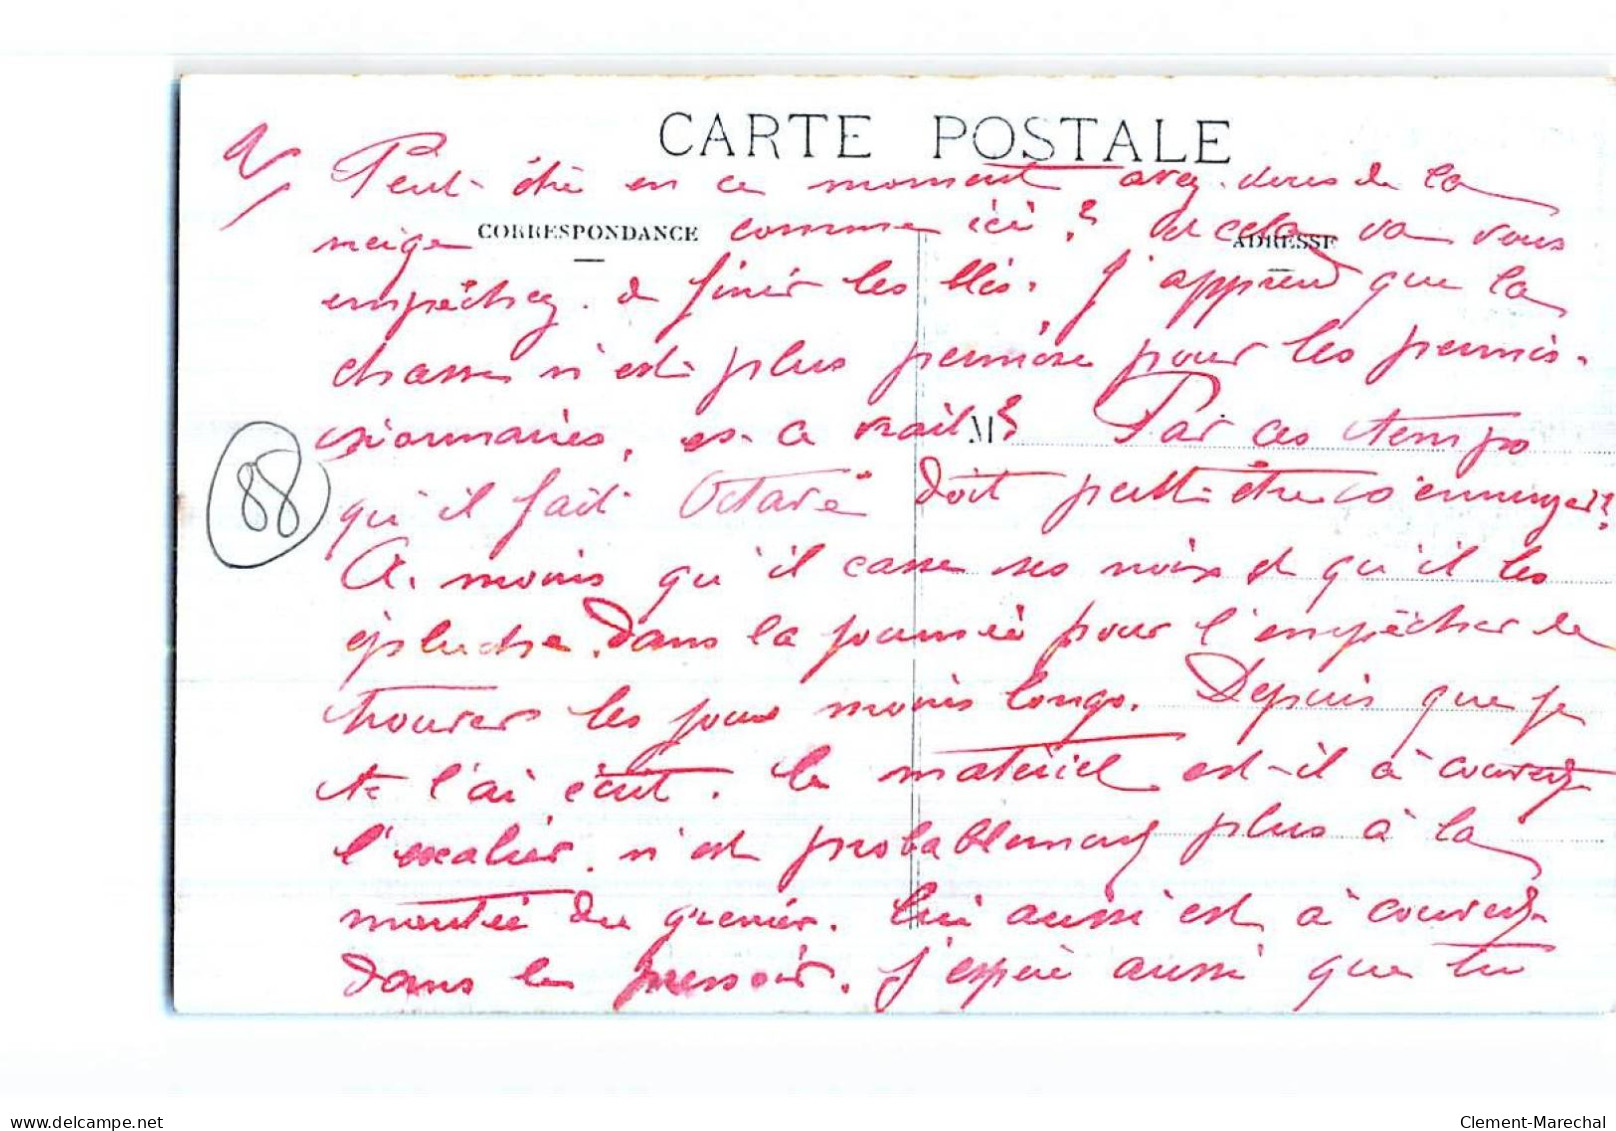 CARTE POSTALE
2/
Peut-être en ce moment avez-vous de la
neige comme ici ? et cela va vous
CORRESPONDANCE
ADRESSE
empêchez de finir les blés. J'apprend que la
chasse n'est plus permise pour les permis-
sionnaires, es-ce vrai ? Par ces temps
M
qu'il fait Octave doit peut-être s'ennuyer ?
88
A moins qu'il casse ses noix et qu'il les
épluche dans la journée pour l'empêcher de
trouver les jours moins longs. Depuis que je
te l'ai écrit. le matériel est-il à couvert
l'escalier n'est probablement plus à la
montée du grenier. lui aussi est à couvert
dans le pressoir. J'espère aussi que tu
Clement-Marechal
www.delcampe.net